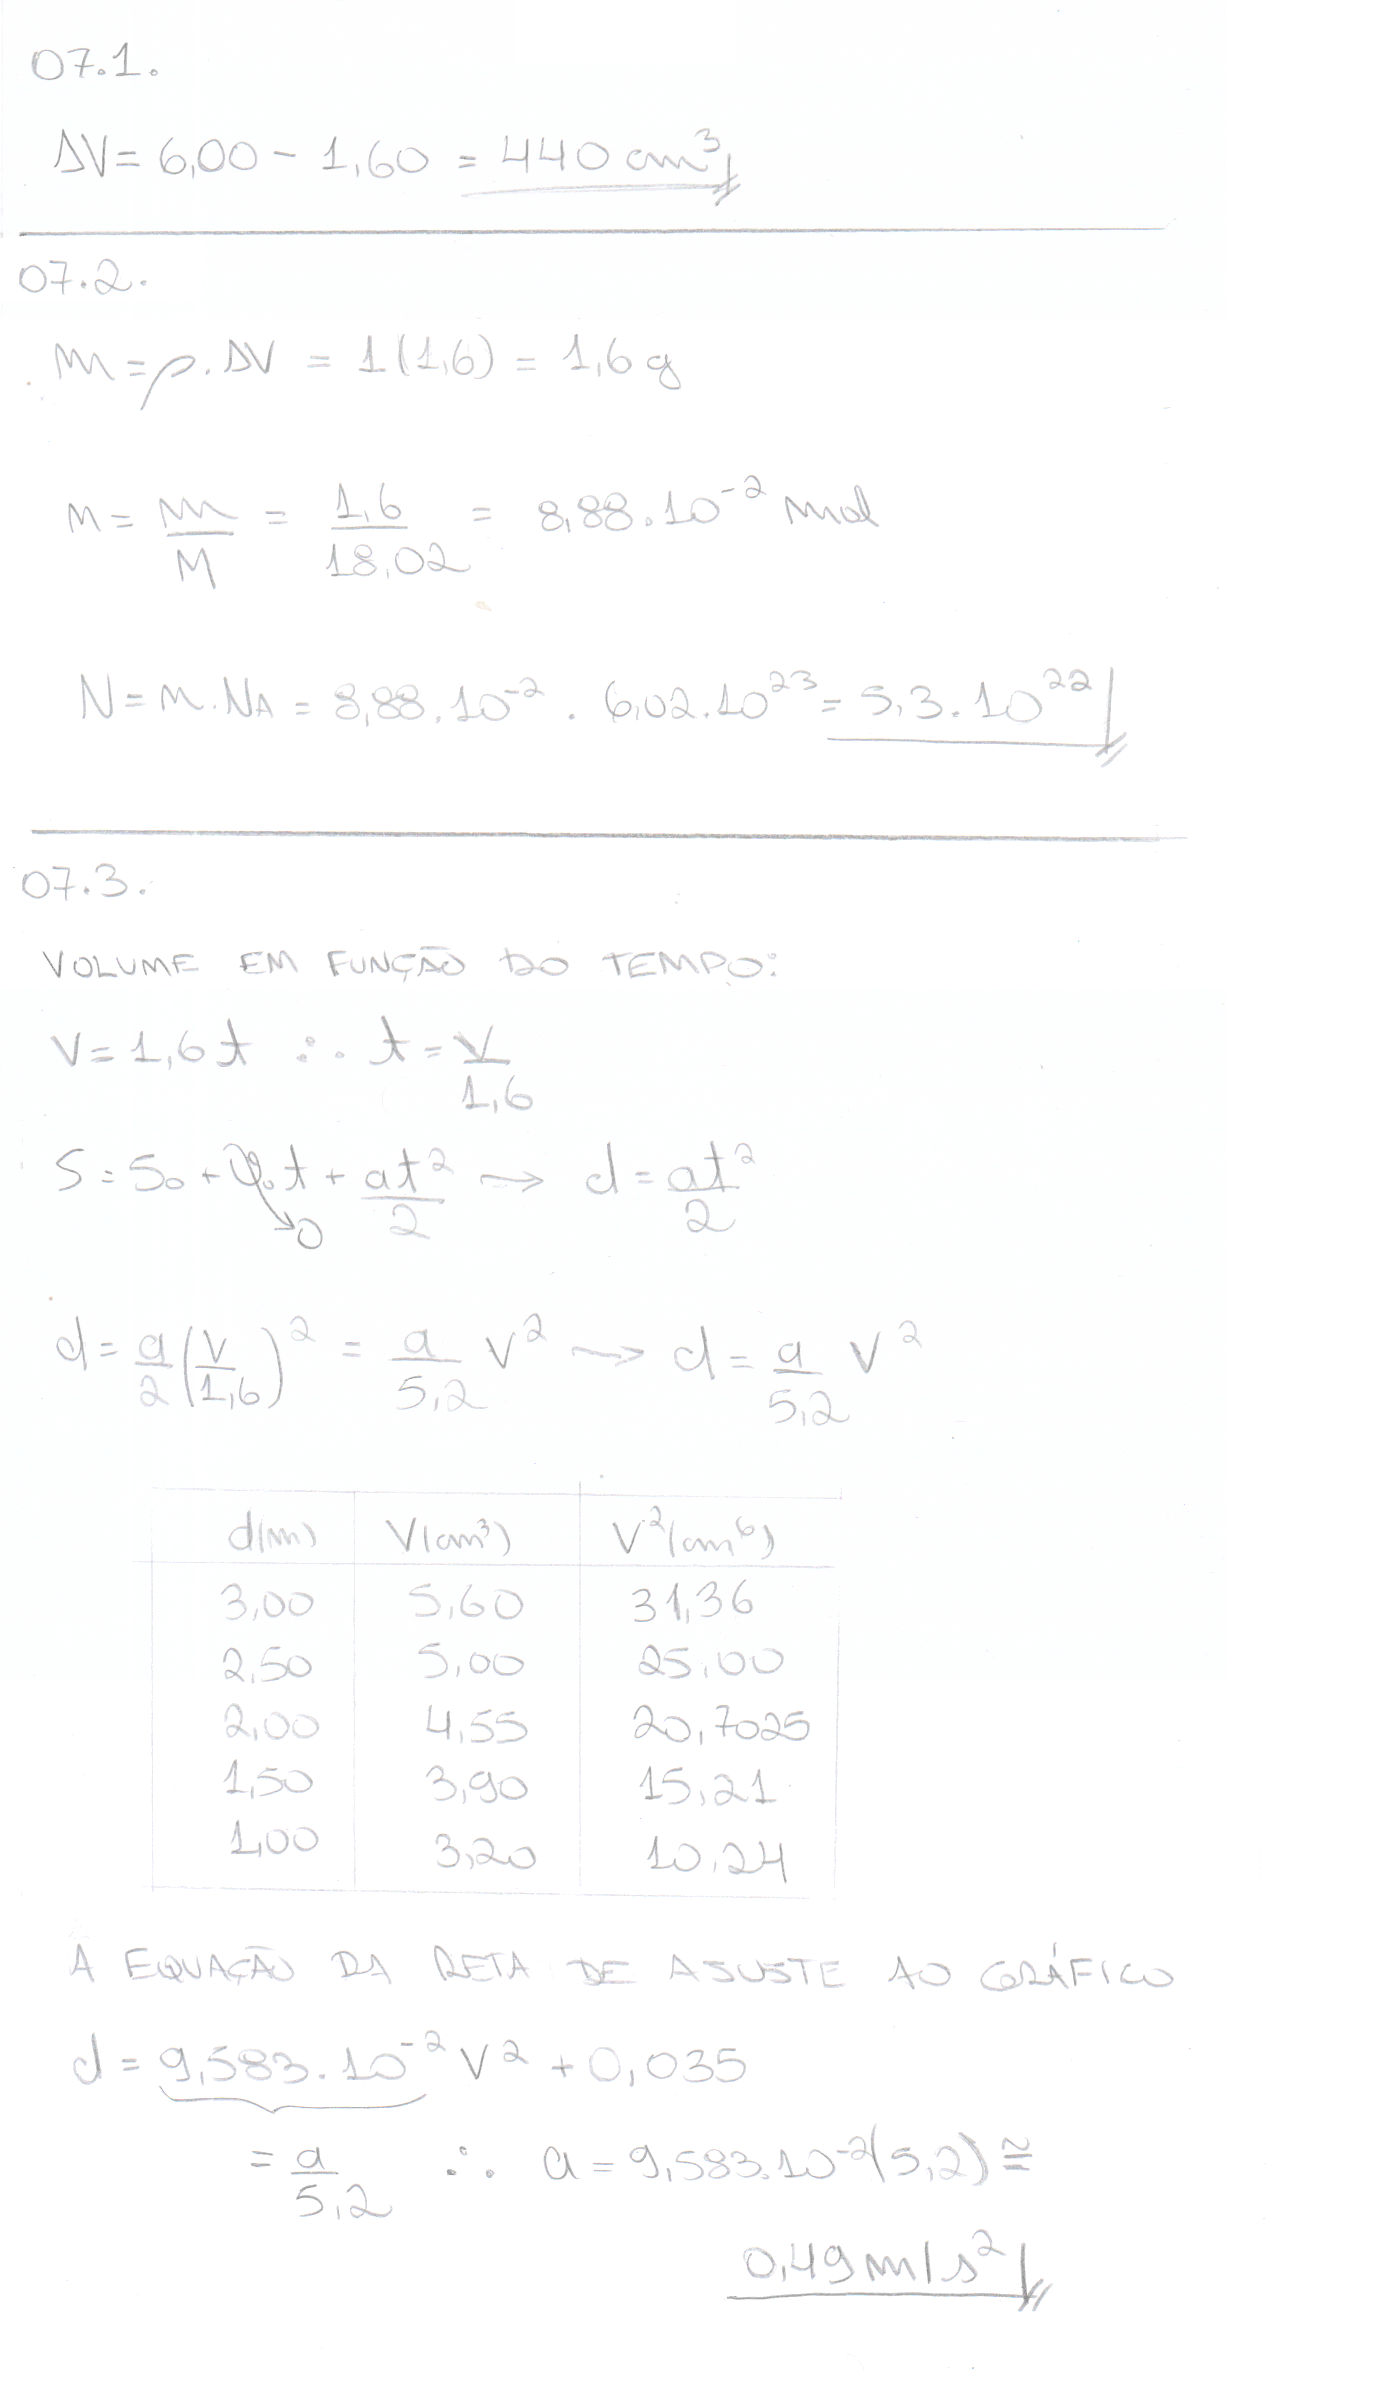 07.1.
ΔV = 6,00 - 1,60 = 440 cm³
07.2.
m = ρ.ΔV = 1(1,6) = 1,6 g
n = m/M = 1,6/18,02 = 8,88.10⁻² mol
N = n.NA = 8,88.10⁻² . 6,02.10²³ = 5,3.10²²
07.3.
VOLUME EM FUNÇÃO DO TEMPO:
V = 1,6t ∴ t = V/1,6
S = S₀ + v₀t + at²/2 → d = at²/2
0
d = a/2 (V/1,6)² = a/5,2 V² → d = a/5,2 V²
d(m) V(cm³) V²(cm⁶)
3,00 5,60 31,36
2,50 5,00 25,00
2,00 4,55 20,7025
1,50 3,90 15,21
1,00 3,20 10,24
A EQUAÇÃO DA RETA DE AJUSTE AO GRÁFICO
d = 9,583.10⁻² V² + 0,035
= a/5,2 ∴ a = 9,583.10⁻²(5,2) ≅
0,49 m/s²